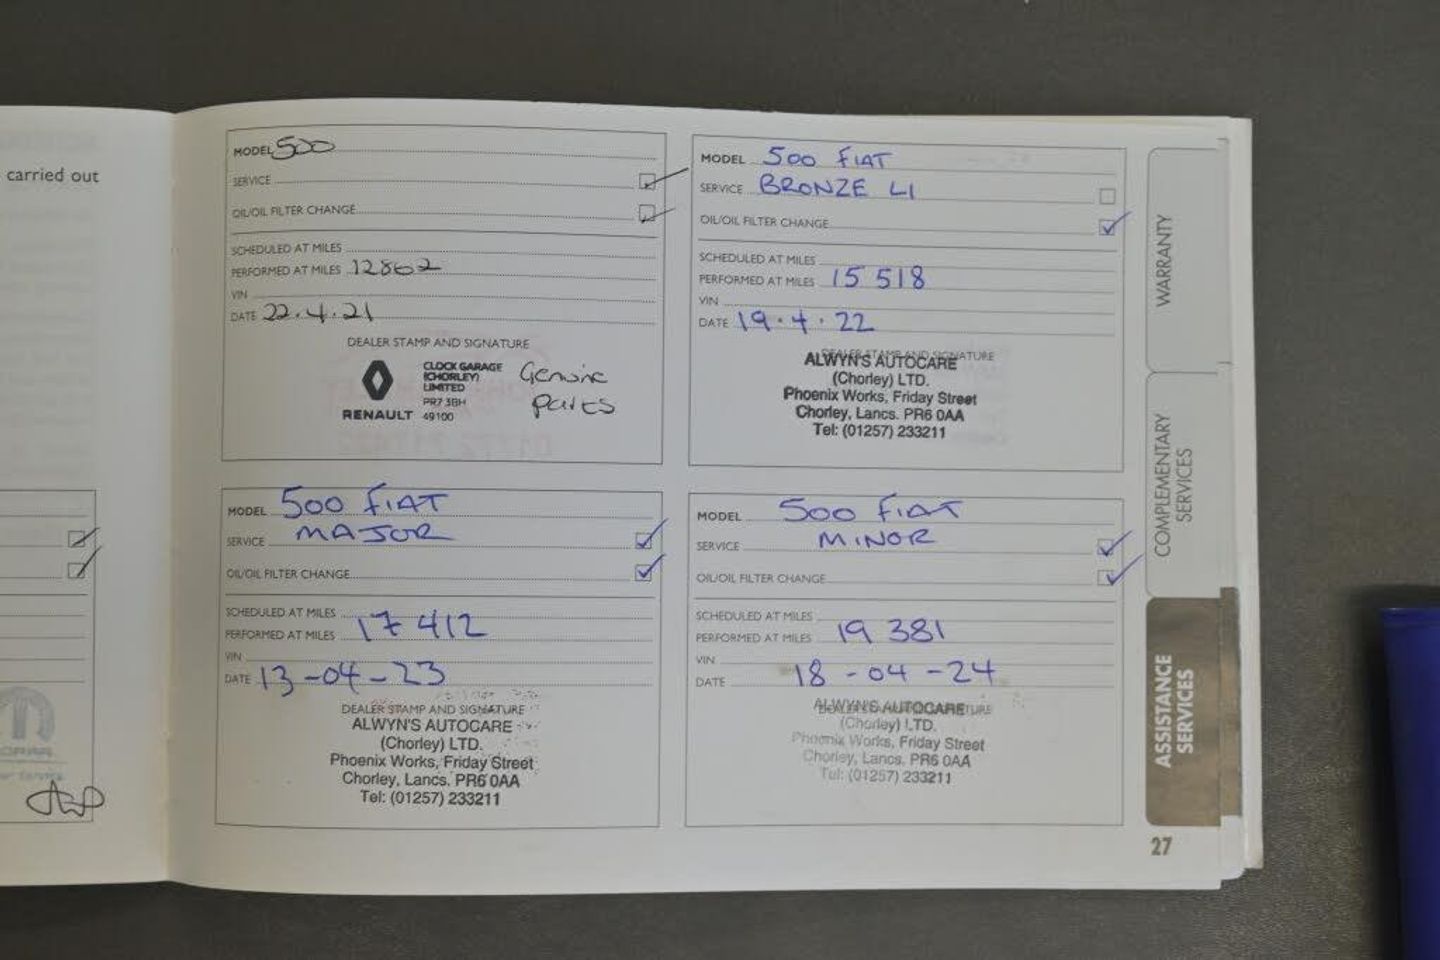 carried out
MODEL 500
SERVICE
OIL/OIL FILTER CHANGE
SCHEDULED AT MILES
PERFORMED AT MILES 12862
VIN
DATE 22.4.21
DEALER STAMP AND SIGNATURE
CLOCK GARAGE
(CHORLEY)
LIMITED
PR7 3BH
RENAULT 49100
Genuine
parts
MODEL 500 FIAT
SERVICE BRONZE LI
OIL/OIL FILTER CHANGE
SCHEDULED AT MILES
PERFORMED AT MILES 15 518
VIN
DATE 19.4.22
DEALER STAMP AND SIGNATURE
ALWYN'S AUTOCARE
(Chorley) LTD.
Phoenix Works, Friday Street
Chorley, Lancs. PR6 0AA
Tel: (01257) 233211
MODEL 500 FIAT
SERVICE MAJOR
OIL/OIL FILTER CHANGE
SCHEDULED AT MILES
PERFORMED AT MILES 17 412
VIN
DATE 13-04-23
DEALER STAMP AND SIGNATURE
ALWYN'S AUTOCARE
(Chorley) LTD.
Phoenix Works, Friday Street
Chorley, Lancs. PR6 0AA
Tel: (01257) 233211
MODEL 500 FIAT
SERVICE MINOR
OIL/OIL FILTER CHANGE
SCHEDULED AT MILES
PERFORMED AT MILES 19 381
VIN
DATE 18-04-24
DEALER STAMP AND SIGNATURE
ALWYN'S AUTOCARE
(Chorley) LTD.
Phoenix Works, Friday Street
Chorley, Lancs. PR6 0AA
Tel: (01257) 233211
WARRANTY
COMPLEMENTARY
SERVICES
ASSISTANCE
SERVICES
27